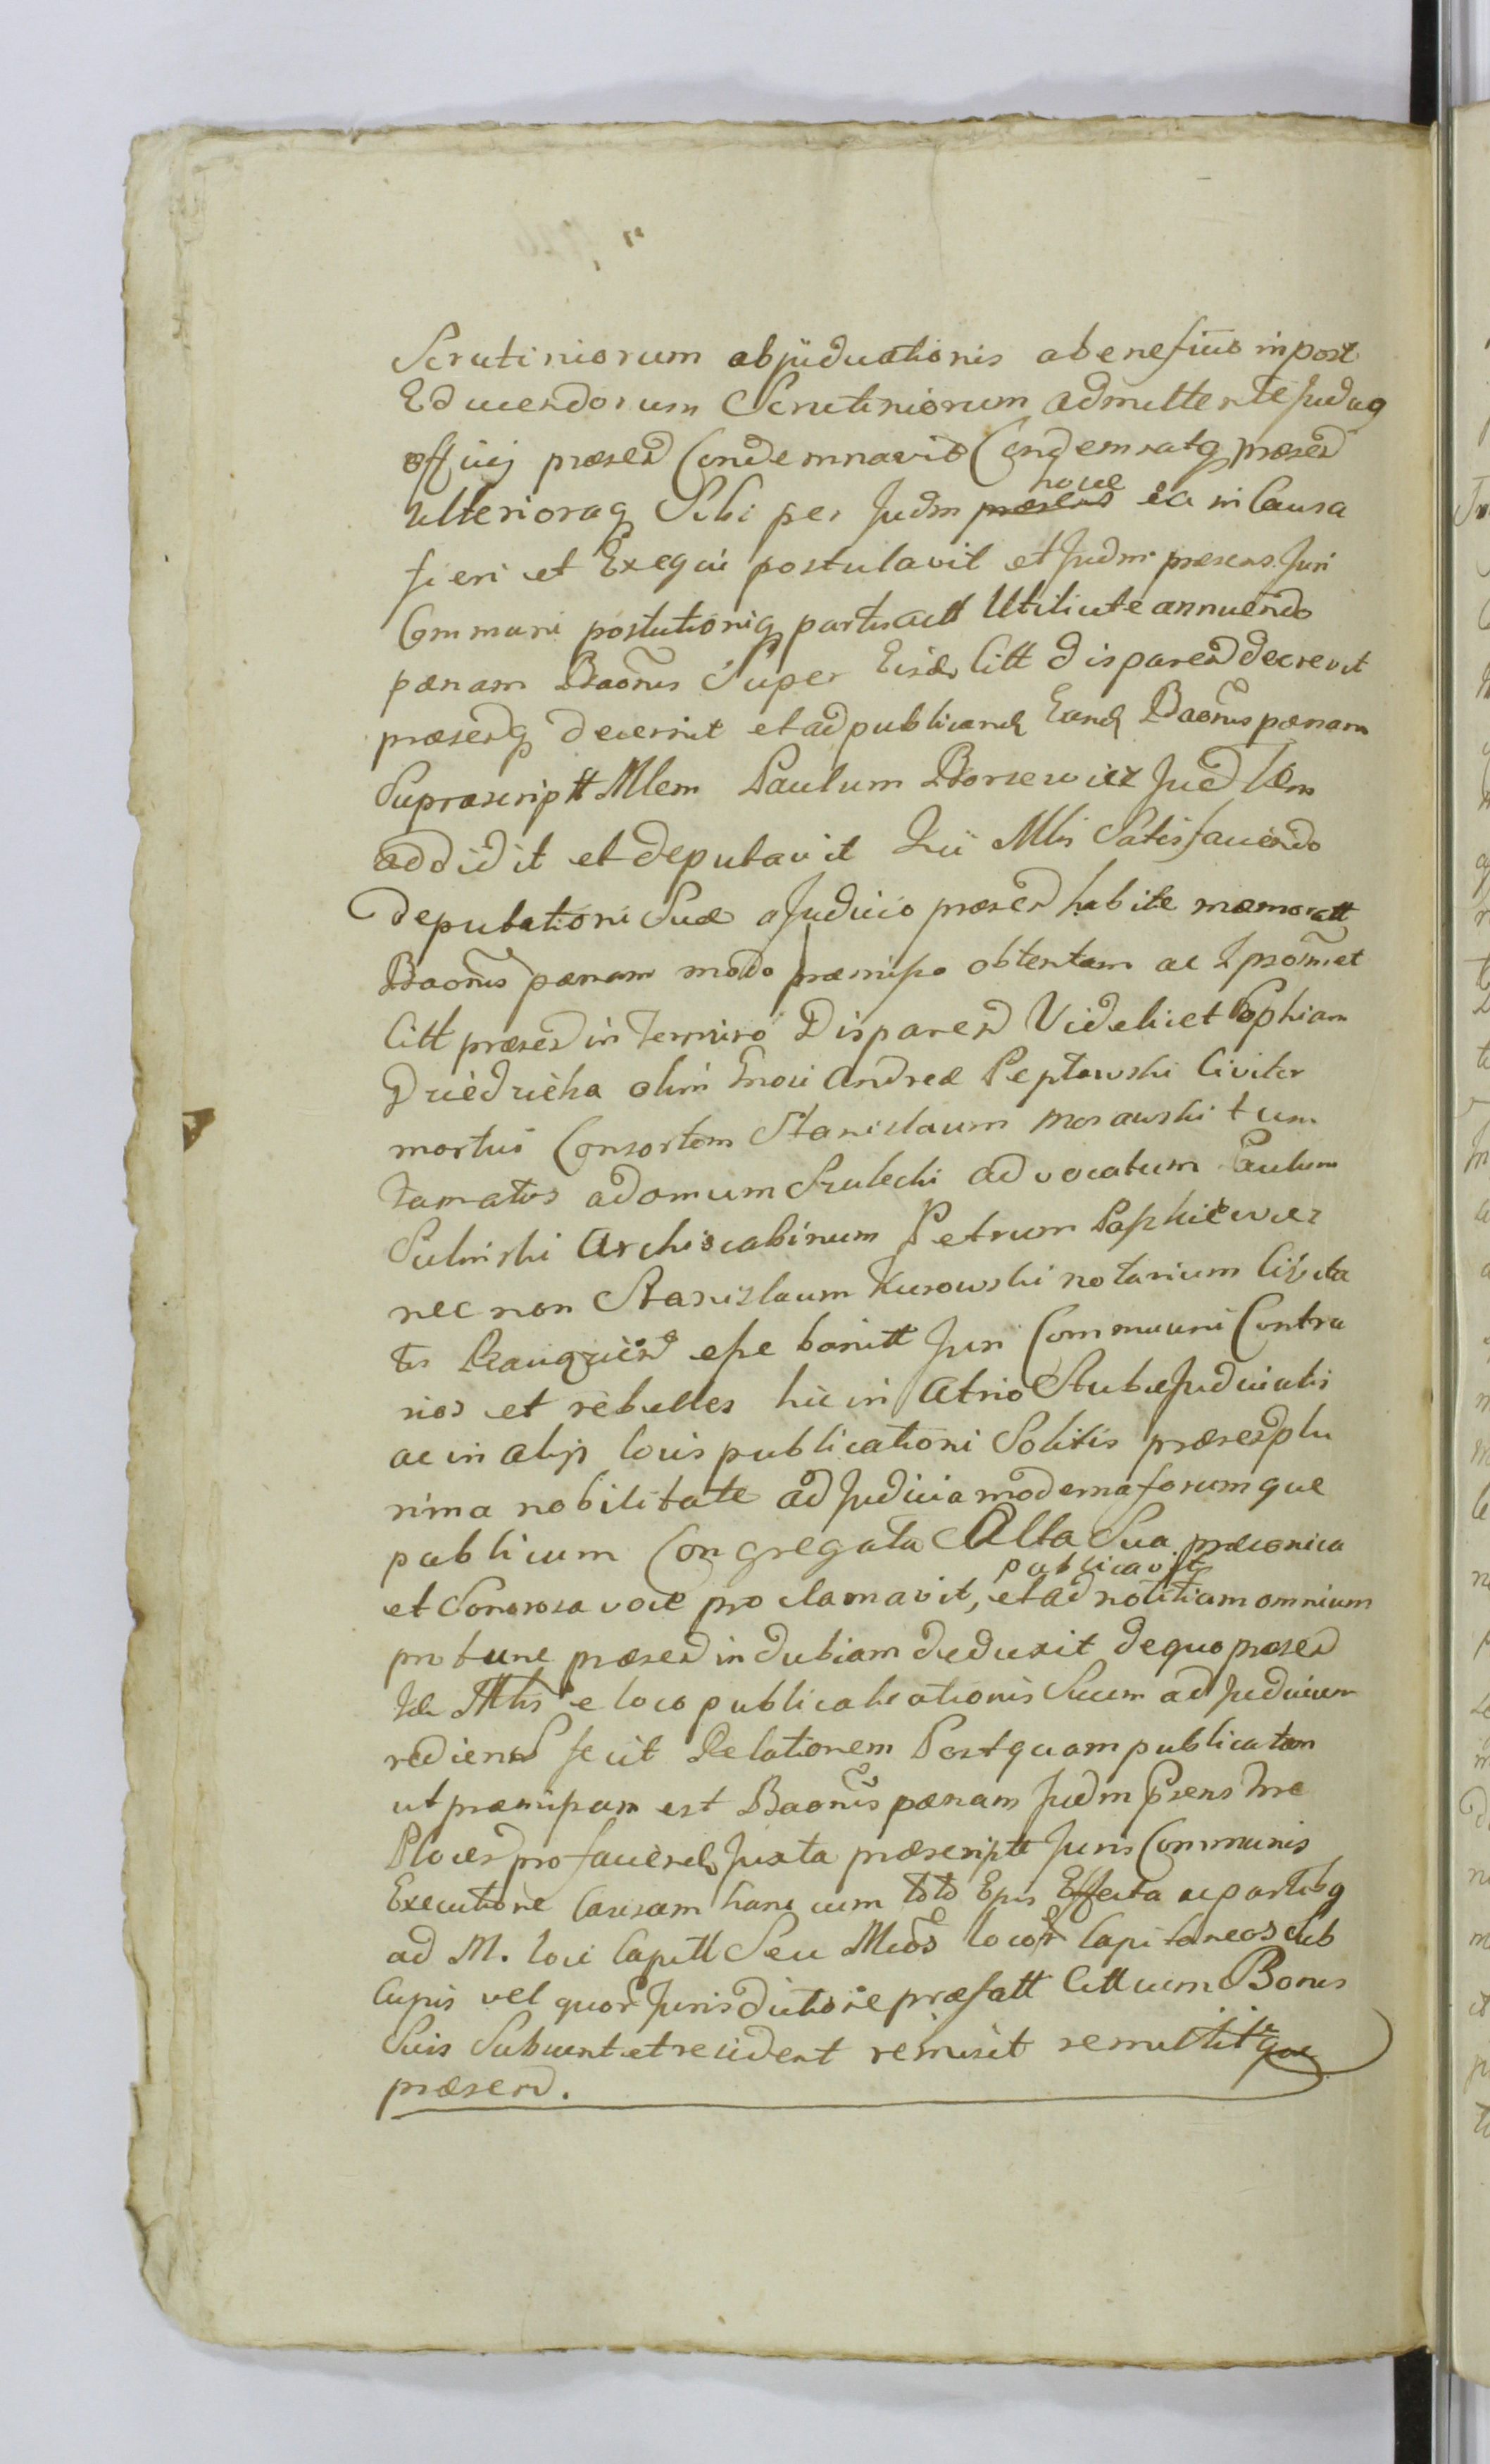 Scrutiniorum abjudicationis a beneficio in post
Educendorum Scrutiniorum admittente Judicq
officij praesen Condemnavit Condemnatq praesen
ulterioraq Sibi per Judm praesens hocce ea in Causa
fieri et Exequi postulavit et Judm praesens Juri
Communi postutioniq partis actt Utilicate annuendo
paenam Baonis Super Eisd Citt disparen decrevit
praesenq decernit et ad publicand Eand Baonis paenam
Suprascriptt Mlem Paulum Borsewicz Jud
addidit et deputavit Qui Mlis Satisfaciendo
deputationi Suae a Judicio praesen habitae memoratt
Baonis paenam modo praemisso obtentam ac Ipsosmet
Citt praesen in Termino Disparen Videlicet Sophiam
olim Andreae Peptowski Civiter
mortui Consortem Stanislaum Morawski tum
Famatos adamum Szulecki advocatum Paulum
Sulinski Archiscabinum Petrum Paphiewicz
nec non Stanislaum Kurowski notarium Civita
tis esse banitt Juri Communi Contra
rios et rebelles hic in Atrio Stubae Judicialis
ac in alijs locis publicationi Solitis praesen plu
rima nobilitate ad Judicia moderna forumque
publicum Congregata Alta Sua praeconica
et Sonorosa voce proclamavit, publicavit et ad notitiam omnium
pro tunc praesen indubiam deduxit de quo praesen
Id Mlis e loco publicaticationis Suum ad Judicium
rediens fecit Relationem Postquam publicatam
ut praemissam est Baonis paenam Judm Psens Trre
Plocen pro faciend Juxta praescriptt Juris Communis
Executione Causam hanc cum toto Ejus Effectu ac partibq
ad M. loci Capitt Seu Mcos locor Capitaneos Sub
Cujus vel quor Jurisdictione praefatt Citt cum Bonis
Suis Subsunt et resident remisit remittitque
praesen.